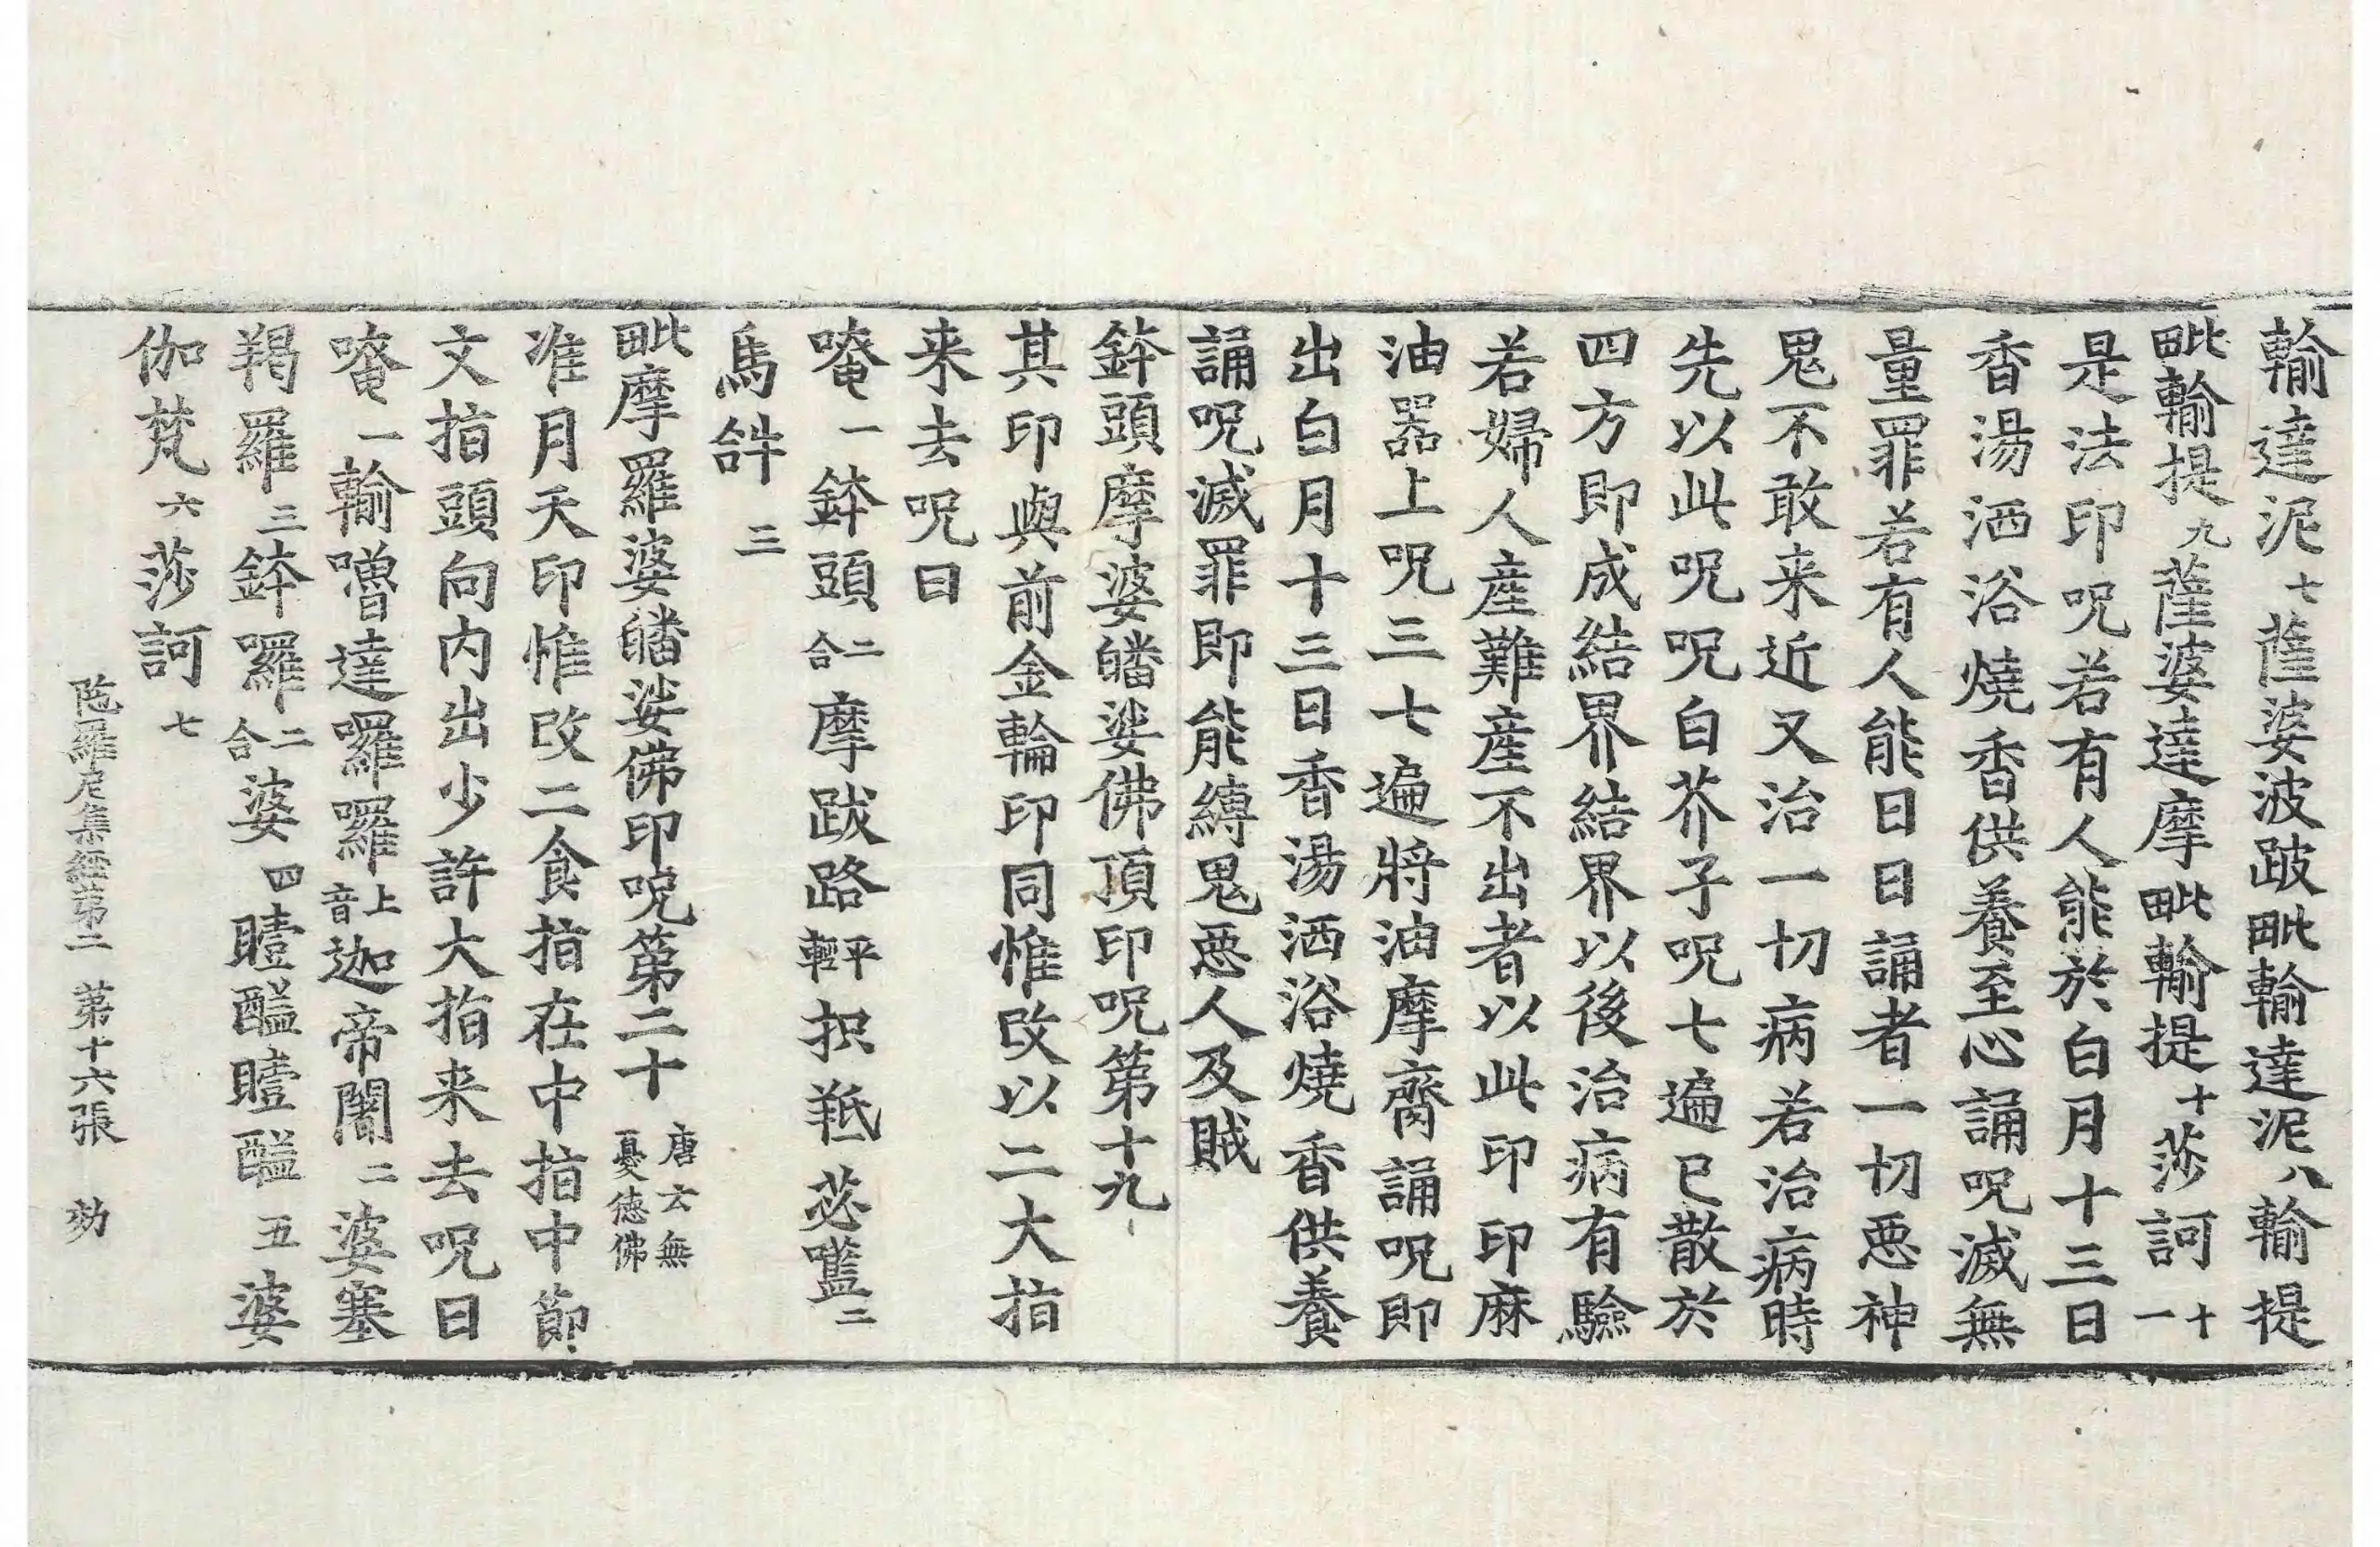 輸達泥七薩婆波跛毗輸達泥八輸提
毗輸提九薩婆達摩毗輸提十莎訶十一
是法印呪若有人能於白月十三日
香湯洒浴燒香供養至心誦呪滅無
量罪若有人能日日誦者一切惡神
鬼不敢来近又治一切病若治病時
先以此呪呪白芥子呪七遍已散於
四方即成結界結界以後治病有驗
若婦人産難産不出者以此印印麻
油器上呪三七遍將油摩齎誦呪即
出白月十三日香湯洒浴燒香供養
誦呪滅罪即能縛鬼惡人及賊
鉢頭摩婆皤娑佛頂印呪第十九
其印與前金輪印同惟改以二大指
来去呪曰
唵一鉢頭二合摩跋路平輕抧羝苾㘕二
馬𤙖三
毗摩羅婆皤娑佛印呪第二十唐云無憂德佛
准月天印惟改二食指在中指中節
文指頭向内出少許大指来去呪曰
唵一輸噜達囉囉上音迦帝闍二婆塞
羯羅三鉢囉二合婆四瞦醯瞦醯五婆
伽梵六莎訶七
陁羅尼集經第二 第十六張 効